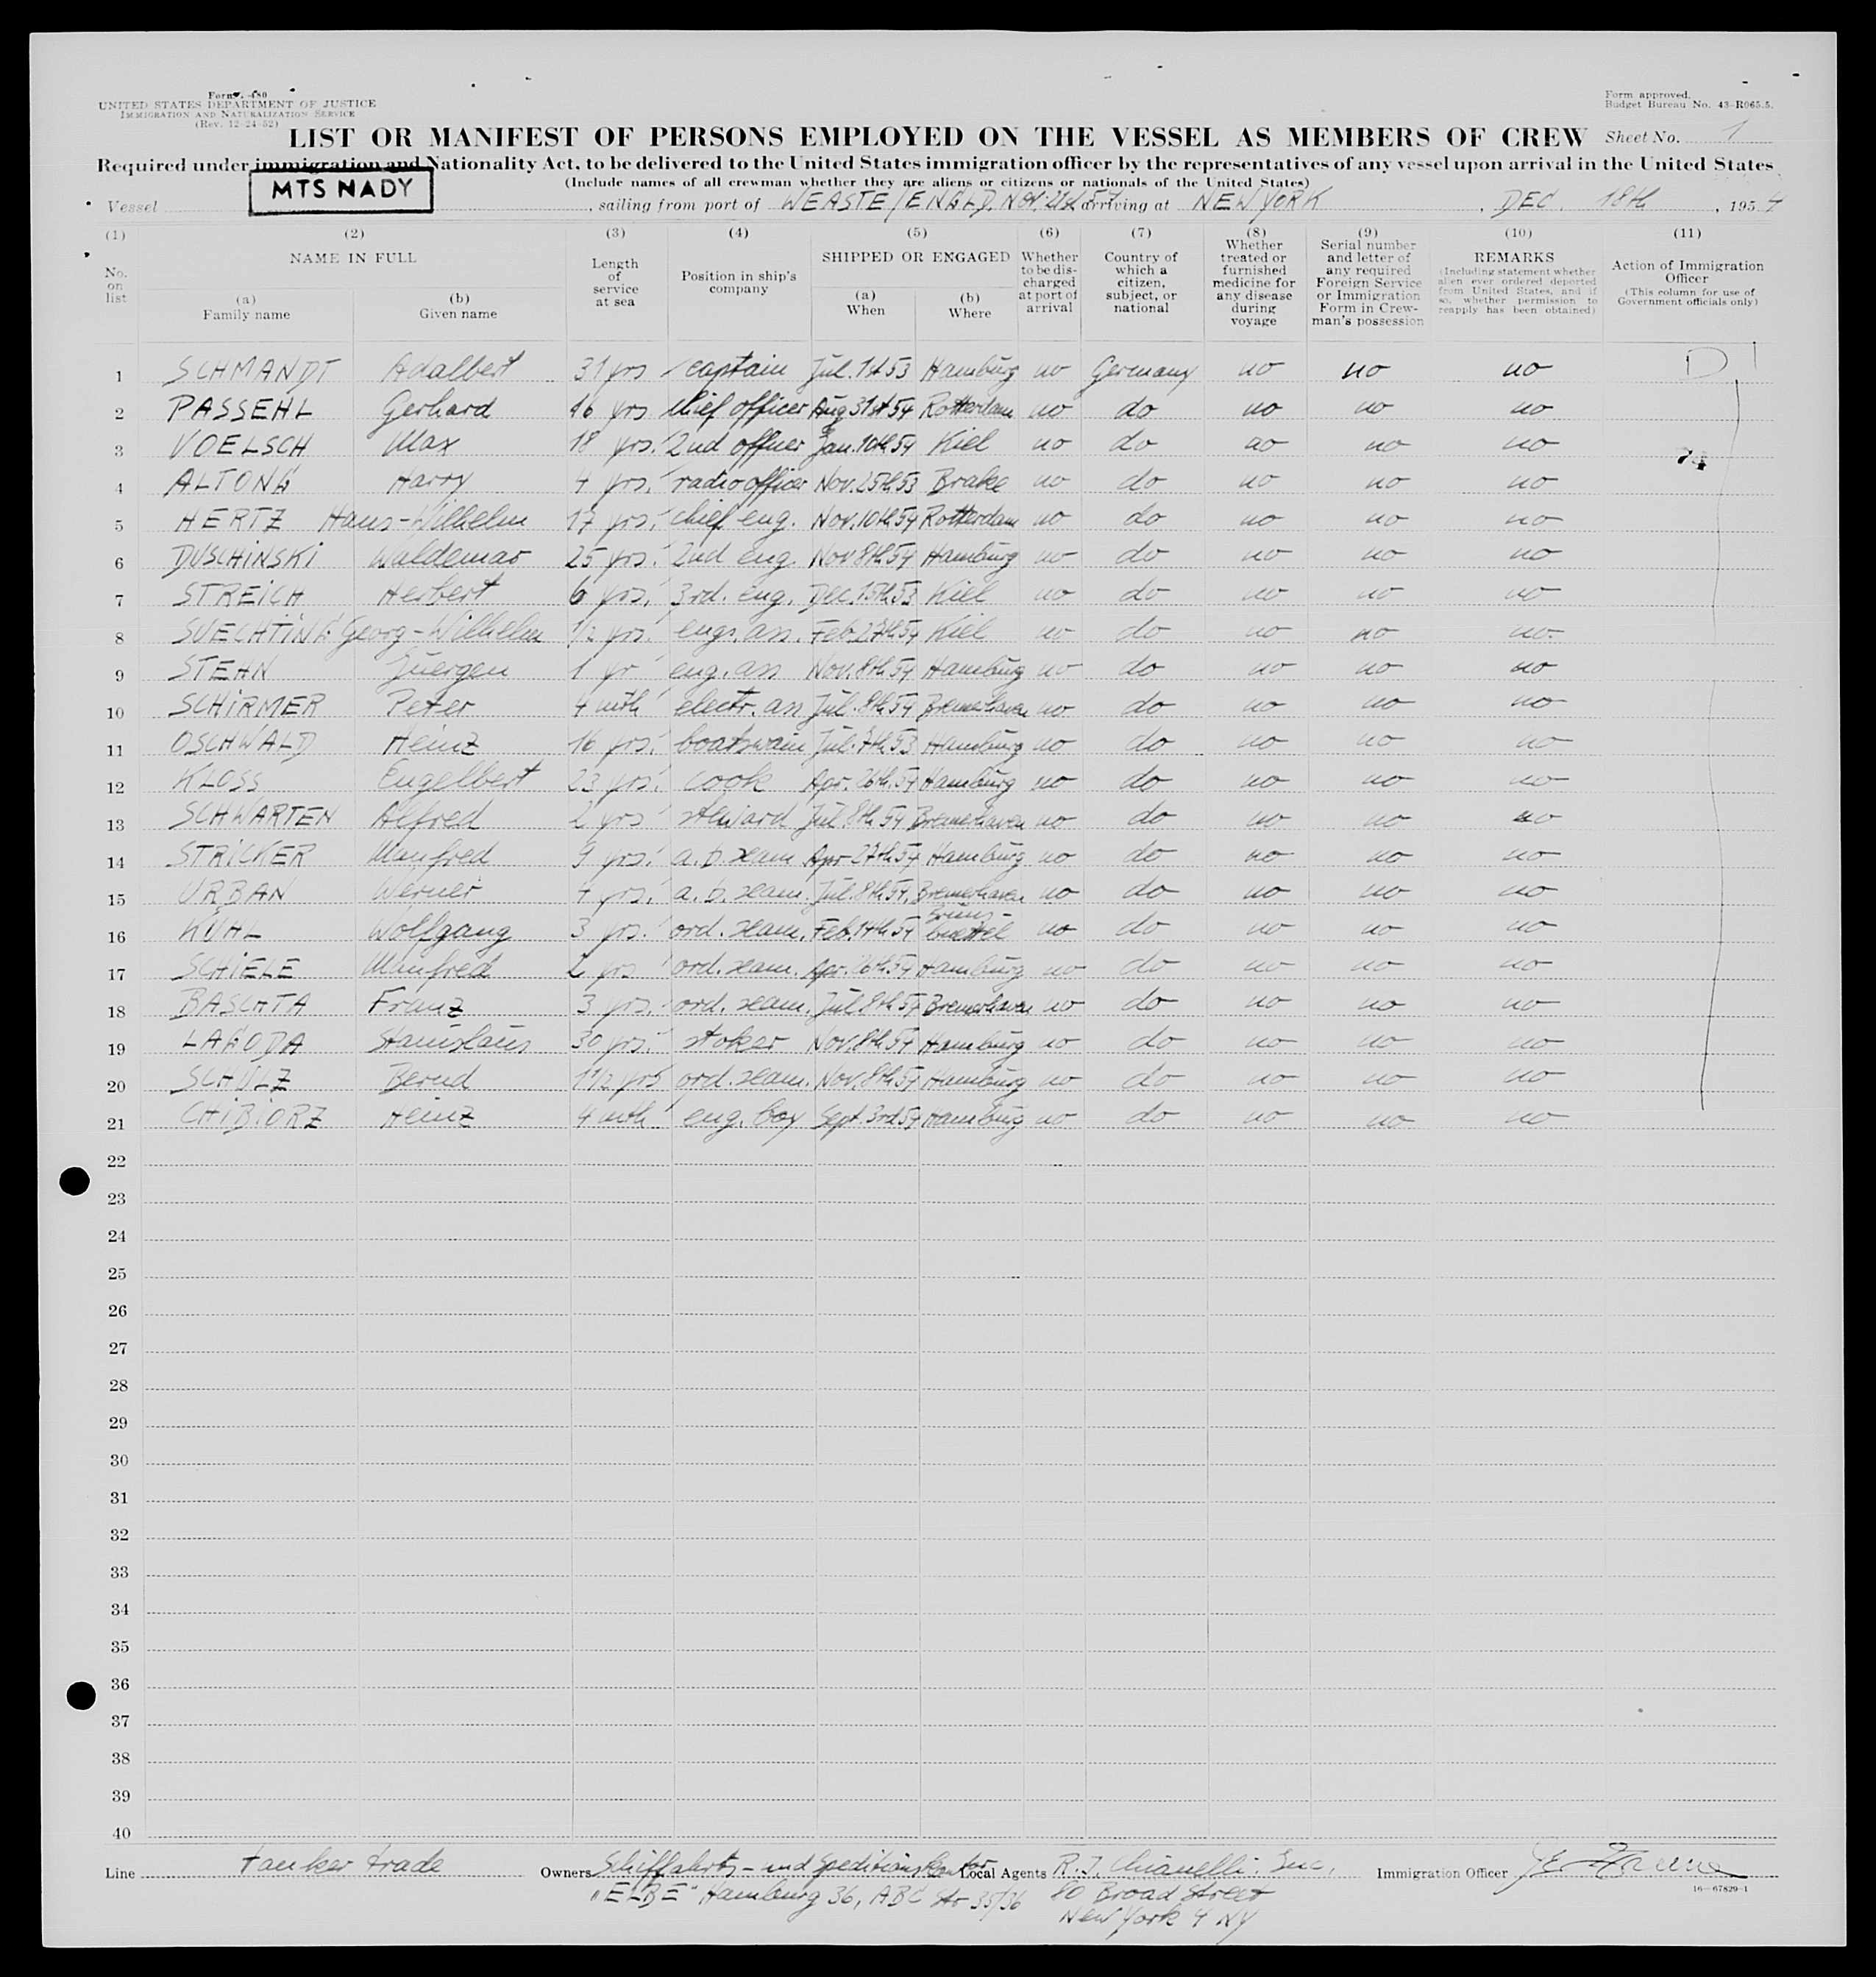 Form I-480
UNITED STATES DEPARTMENT OF JUSTICE
IMMIGRATION AND NATURALIZATION SERVICE
(Rev. 12-24-52)
Form approved.
Budget Bureau No. 43-R065.5.
LIST OR MANIFEST OF PERSONS EMPLOYED ON THE VESSEL AS MEMBERS OF CREW Sheet No. 1
Required under immigration and Nationality Act, to be delivered to the United States immigration officer by the representatives of any vessel upon arrival in the United States
(Include names of all crewman whether they are aliens or citizens or nationals of the United States)
Vessel MTS NADY, sailing from port of WEASTE/ENGLD. Nov. 54 arriving at NEW YORK, DEC. 18th, 1954
(1) No. on list
(2) NAME IN FULL (a) Family name (b) Given name
(3) Length of service at sea
(4) Position in ship's company
(5) SHIPPED OR ENGAGED (a) When (b) Where
(6) Whether to be discharged at port of arrival
(7) Country of which a citizen, subject, or national
(8) Whether treated or furnished medicine for any disease during voyage
(9) Serial number and letter of any required Foreign Service or Immigration Form in Crewman's possession
(10) REMARKS (Including statement whether alien ever ordered deported from United States, and if so, whether permission to reapply has been obtained)
(11) Action of Immigration Officer (This column for use of Government officials only)
1 SCHMANDT Adalbert 31 yrs captain Jul. 1st 53 Hamburg no Germany no no no D
2 PASSEHL Gerhard 16 yrs chief officer Aug 31st 54 Rotterdam no do no no no
3 VOELSCH Max 18 yrs. 2nd officer Jan. 10th 54 Kiel no do no no no
4 ALTONG Harry 4 yrs. radio officer Nov. 25th 53 Brake no do no no no
5 HERTZ Hans-Wilhelm 17 yrs. chief eng. Nov. 10th 54 Rotterdam no do no no no
6 DUSCHINSKI Waldemar 25 yrs. 2nd eng. Nov 8th 54 Hamburg no do no no no
7 STREICH Herbert 6 yrs. 3rd. eng. Dec. 15th 53 Kiel no do no no no
8 SUECHTING Georg-Wilhelm 1/2 yrs. engs. ass. Feb. 27th 54 Kiel no do no no no
9 STEHN Juergen 1 yr eng. ass Nov. 8th 54 Hamburg no do no no no
10 SCHIRMER Peter 4 mth electr. ass Jul. 8th 54 Bremerhaven no do no no no
11 OSCHWALD Heinz 16 yrs. boatswain Jul. 7th 53 Hamburg no do no no no
12 KLOSS Engelbert 23 yrs. cook Apr. 26th. 54 Hamburg no do no no no
13 SCHWARTEN Alfred 2 yrs steward Jul. 8th 54 Bremerhaven no do no no no
14 STRICKER Manfred yrs. a. b. seam Apr 27th 54 Hamburg no do no no no
15 URBAN Werner 4 yrs. a. b. seam. Jul. 8th 54. Bremerhaven no do no no no
16 KÜHL Wolfgang 3 yrs. ord. seam. Feb. 14th 54 Brunsbuettel no do no no no
17 SCHIELE Manfred 2 yrs ord. seam. Apr. 26th 54 Hamburg no do no no no
18 BASCHTA Franz 3 yrs. ord. seam. Jul 8th 54 Bremerhaven no do no no no
19 LAGODA Stanislaus 30 yrs. stoker Nov. 8th 54 Hamburg no do no no no
20 SCHULZ Bernd 1 1/2 yrs ord. seam. Nov. 8th 54 Hamburg no do no no no
21 CHIBIORZ Heinz 4 mth eng. boy Sept. 3rd 54 Hamburg no do no no no
22
23
24
25
26
27
28
29
30
31
32
33
34
35
36
37
38
39
40
Line Tanker trade Owners Schiffahrts- und Speditionskontor Local Agents R. J. Chianelli Inc. Immigration Officer
"ELBE" Hamburg 36, ABC Str 35/36 80 Broad Street
New York 4 NY
16—67829-1